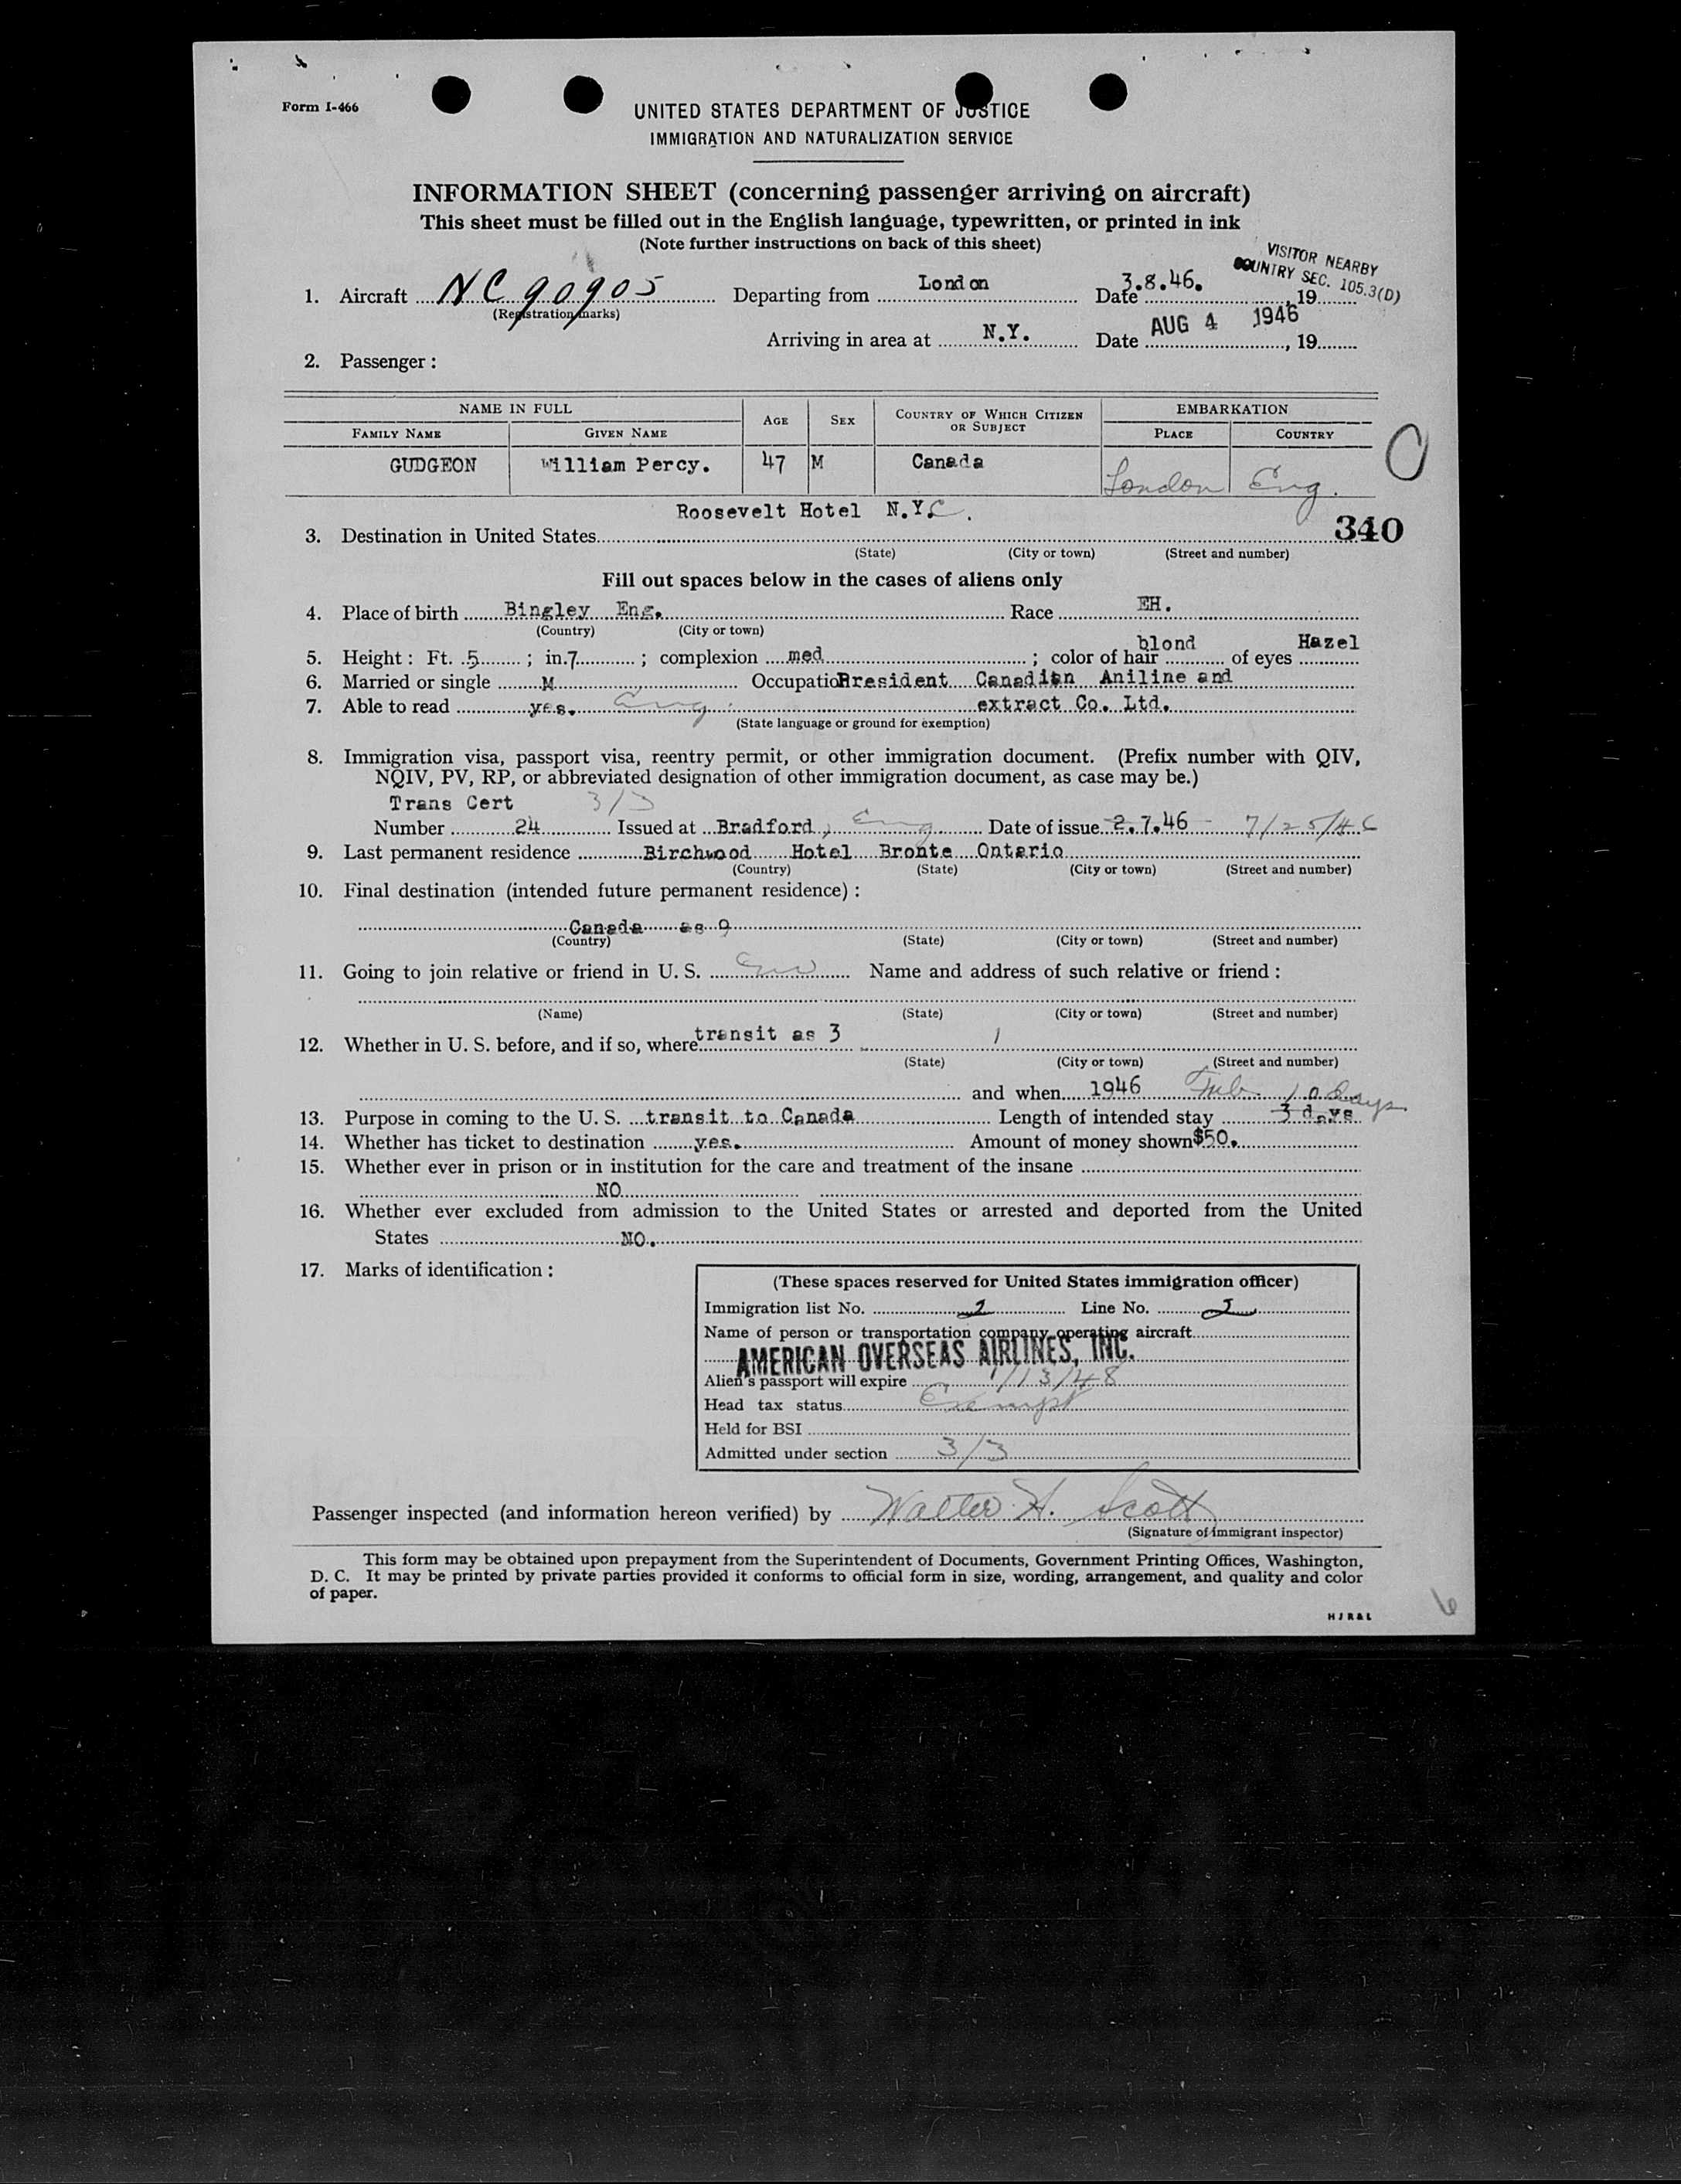 Form I-466
UNITED STATES DEPARTMENT OF JUSTICE
IMMIGRATION AND NATURALIZATION SERVICE
INFORMATION SHEET (concerning passenger arriving on aircraft)
This sheet must be filled out in the English language, typewritten, or printed in ink
(Note further instructions on back of this sheet)
VISITOR NEARBY
COUNTRY SEC. 105.3(D)
1. Aircraft NC 90905 Departing from London Date 3.8.46. , 19
(Registration marks)
Arriving in area at N.Y. Date AUG 4 1946 , 19
2. Passenger :
NAME IN FULL AGE SEX COUNTRY OF WHICH CITIZEN OR SUBJECT EMBARKATION
FAMILY NAME GIVEN NAME PLACE COUNTRY
GUDGEON William Percy. 47 M Canada London Eng.
Roosevelt Hotel N.Y.C.
340
3. Destination in United States
(State) (City or town) (Street and number)
Fill out spaces below in the cases of aliens only
4. Place of birth Bingley Eng. Race EH.
(Country) (City or town)
5. Height : Ft. 5 ; in. 7 ; complexion med ; color of hair blond of eyes Hazel
6. Married or single M Occupation President Canadian Aniline and
7. Able to read yes. Eng. extract Co. Ltd.
(State language or ground for exemption)
8. Immigration visa, passport visa, reentry permit, or other immigration document. (Prefix number with QIV,
NQIV, PV, RP, or abbreviated designation of other immigration document, as case may be.)
Trans Cert 3/3
Number 24 Issued at Bradford, Eng Date of issue 2.7.46 7/25/46
9. Last permanent residence Birchwood Hotel Bronte Ontario
(Country) (State) (City or town) (Street and number)
10. Final destination (intended future permanent residence) :
Canada as 9
(Country) (State) (City or town) (Street and number)
11. Going to join relative or friend in U. S. Name and address of such relative or friend :
(Name) (State) (City or town) (Street and number)
12. Whether in U. S. before, and if so, where transit as 3
(State) (City or town) (Street and number)
and when 1946 10 days
13. Purpose in coming to the U. S. transit to Canada Length of intended stay 3 days
14. Whether has ticket to destination yes. Amount of money shown $50.
15. Whether ever in prison or in institution for the care and treatment of the insane
NO
16. Whether ever excluded from admission to the United States or arrested and deported from the United
States NO.
17. Marks of identification :
(These spaces reserved for United States immigration officer)
Immigration list No. 2 Line No. 2
Name of person or transportation company operating aircraft
AMERICAN OVERSEAS AIRLINES, INC.
Alien's passport will expire 1/13/48
Head tax status Exempt
Held for BSI
Admitted under section 3/3
Passenger inspected (and information hereon verified) by Walter H. Scott
(Signature of immigrant inspector)
This form may be obtained upon prepayment from the Superintendent of Documents, Government Printing Offices, Washington,
D. C. It may be printed by private parties provided it conforms to official form in size, wording, arrangement, and quality and color
of paper.
HJR&L
6